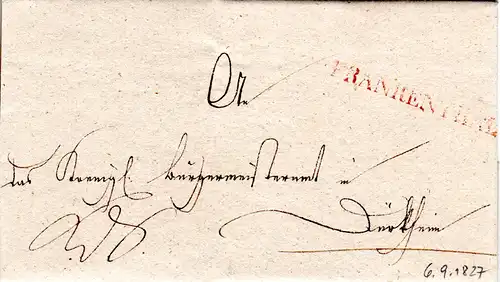 An
FRANKENTHAL
das Koenigl. Bürgermeisteramt in
Dürkheim
6.9.1827